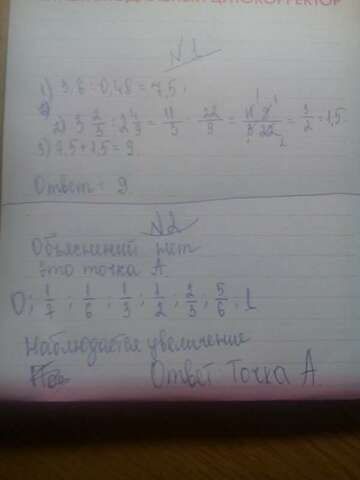 ЦИТОКОРРЕКТОР
№1
1) 3,6 : 0,48 = 7,5;
2) 3 2/3 : 2 4/9 = 11/3 : 22/9 = 11·9/3·22 = 3/2 = 1,5
3) 7,5 + 1,5 = 9
Ответ: 9.
№2
Объяснений нет
это точка А
0; 1/7; 1/6; 1/3; 1/2; 2/3; 5/6; 1
Наблюдается увеличение
Ответ точка А.